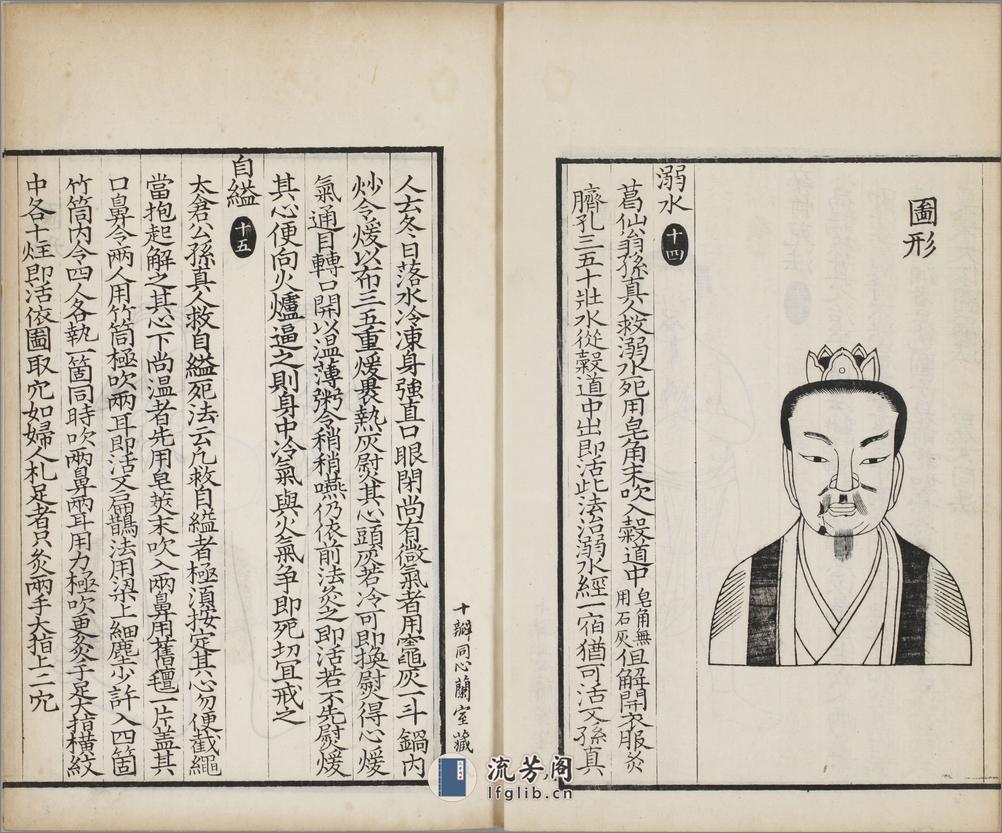 圖形
溺水 十四
葛仙翁孫真人救溺水死用皂角末吹入穀道中皂角無用石灰但解開衣服灸
臍孔三五十壯水從穀道中出即活此法治溺水經一宿猶可活又孫真
人云冬日落水冷凍身強直口眼閉尚有微氣者用竈灰一斗鍋內
炒令煖以布三五重煖裹熱灰熨其心頭灰若冷可即換熨得心煖
氣通目轉口開以温薄粥令稍稍嚥仍依前法灸之即活若不先熨煖
其心便向火爐逼之則身中冷氣與火氣争即死切宜戒之
自縊 十五
太倉公孫真人救自縊死法云凡救自縊者極須按定其心勿便截繩
當抱起解之其心下尚温者先用皂莢末吹入兩鼻用舊氊一片盖其
口鼻令兩人用竹筒極吹兩耳即活又扁鵲法用梁上細塵少許入四箇
竹筒内令四人各執一箇同時吹兩鼻兩耳用力極吹更灸手足大指橫紋
中各十炷即活依圖取穴如婦人札足者只灸兩手大指上二穴
十瓣同心蘭室藏
流芳阁
lfglib.cn